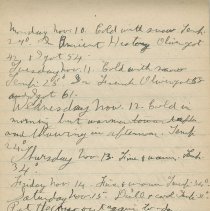 Monday Nov. 10. Cold with snow Temp
24° In Ancient History Oliver got
42 & I got 54.
Tuesday Nov. 11. Cold with snow
Temp. 23° In French Oliver got 53
and I got 61.
Wednesday Nov. 12. Cold in
morning but warmer
and thawing in afternoon. Temp.
24°
Thursday Nov. 13. Fine & warm. Temp.
34°
Friday Nov. 14. Fine & warm Temp. 34°
Saturday Nov. 15. Dull & cold.
Pat